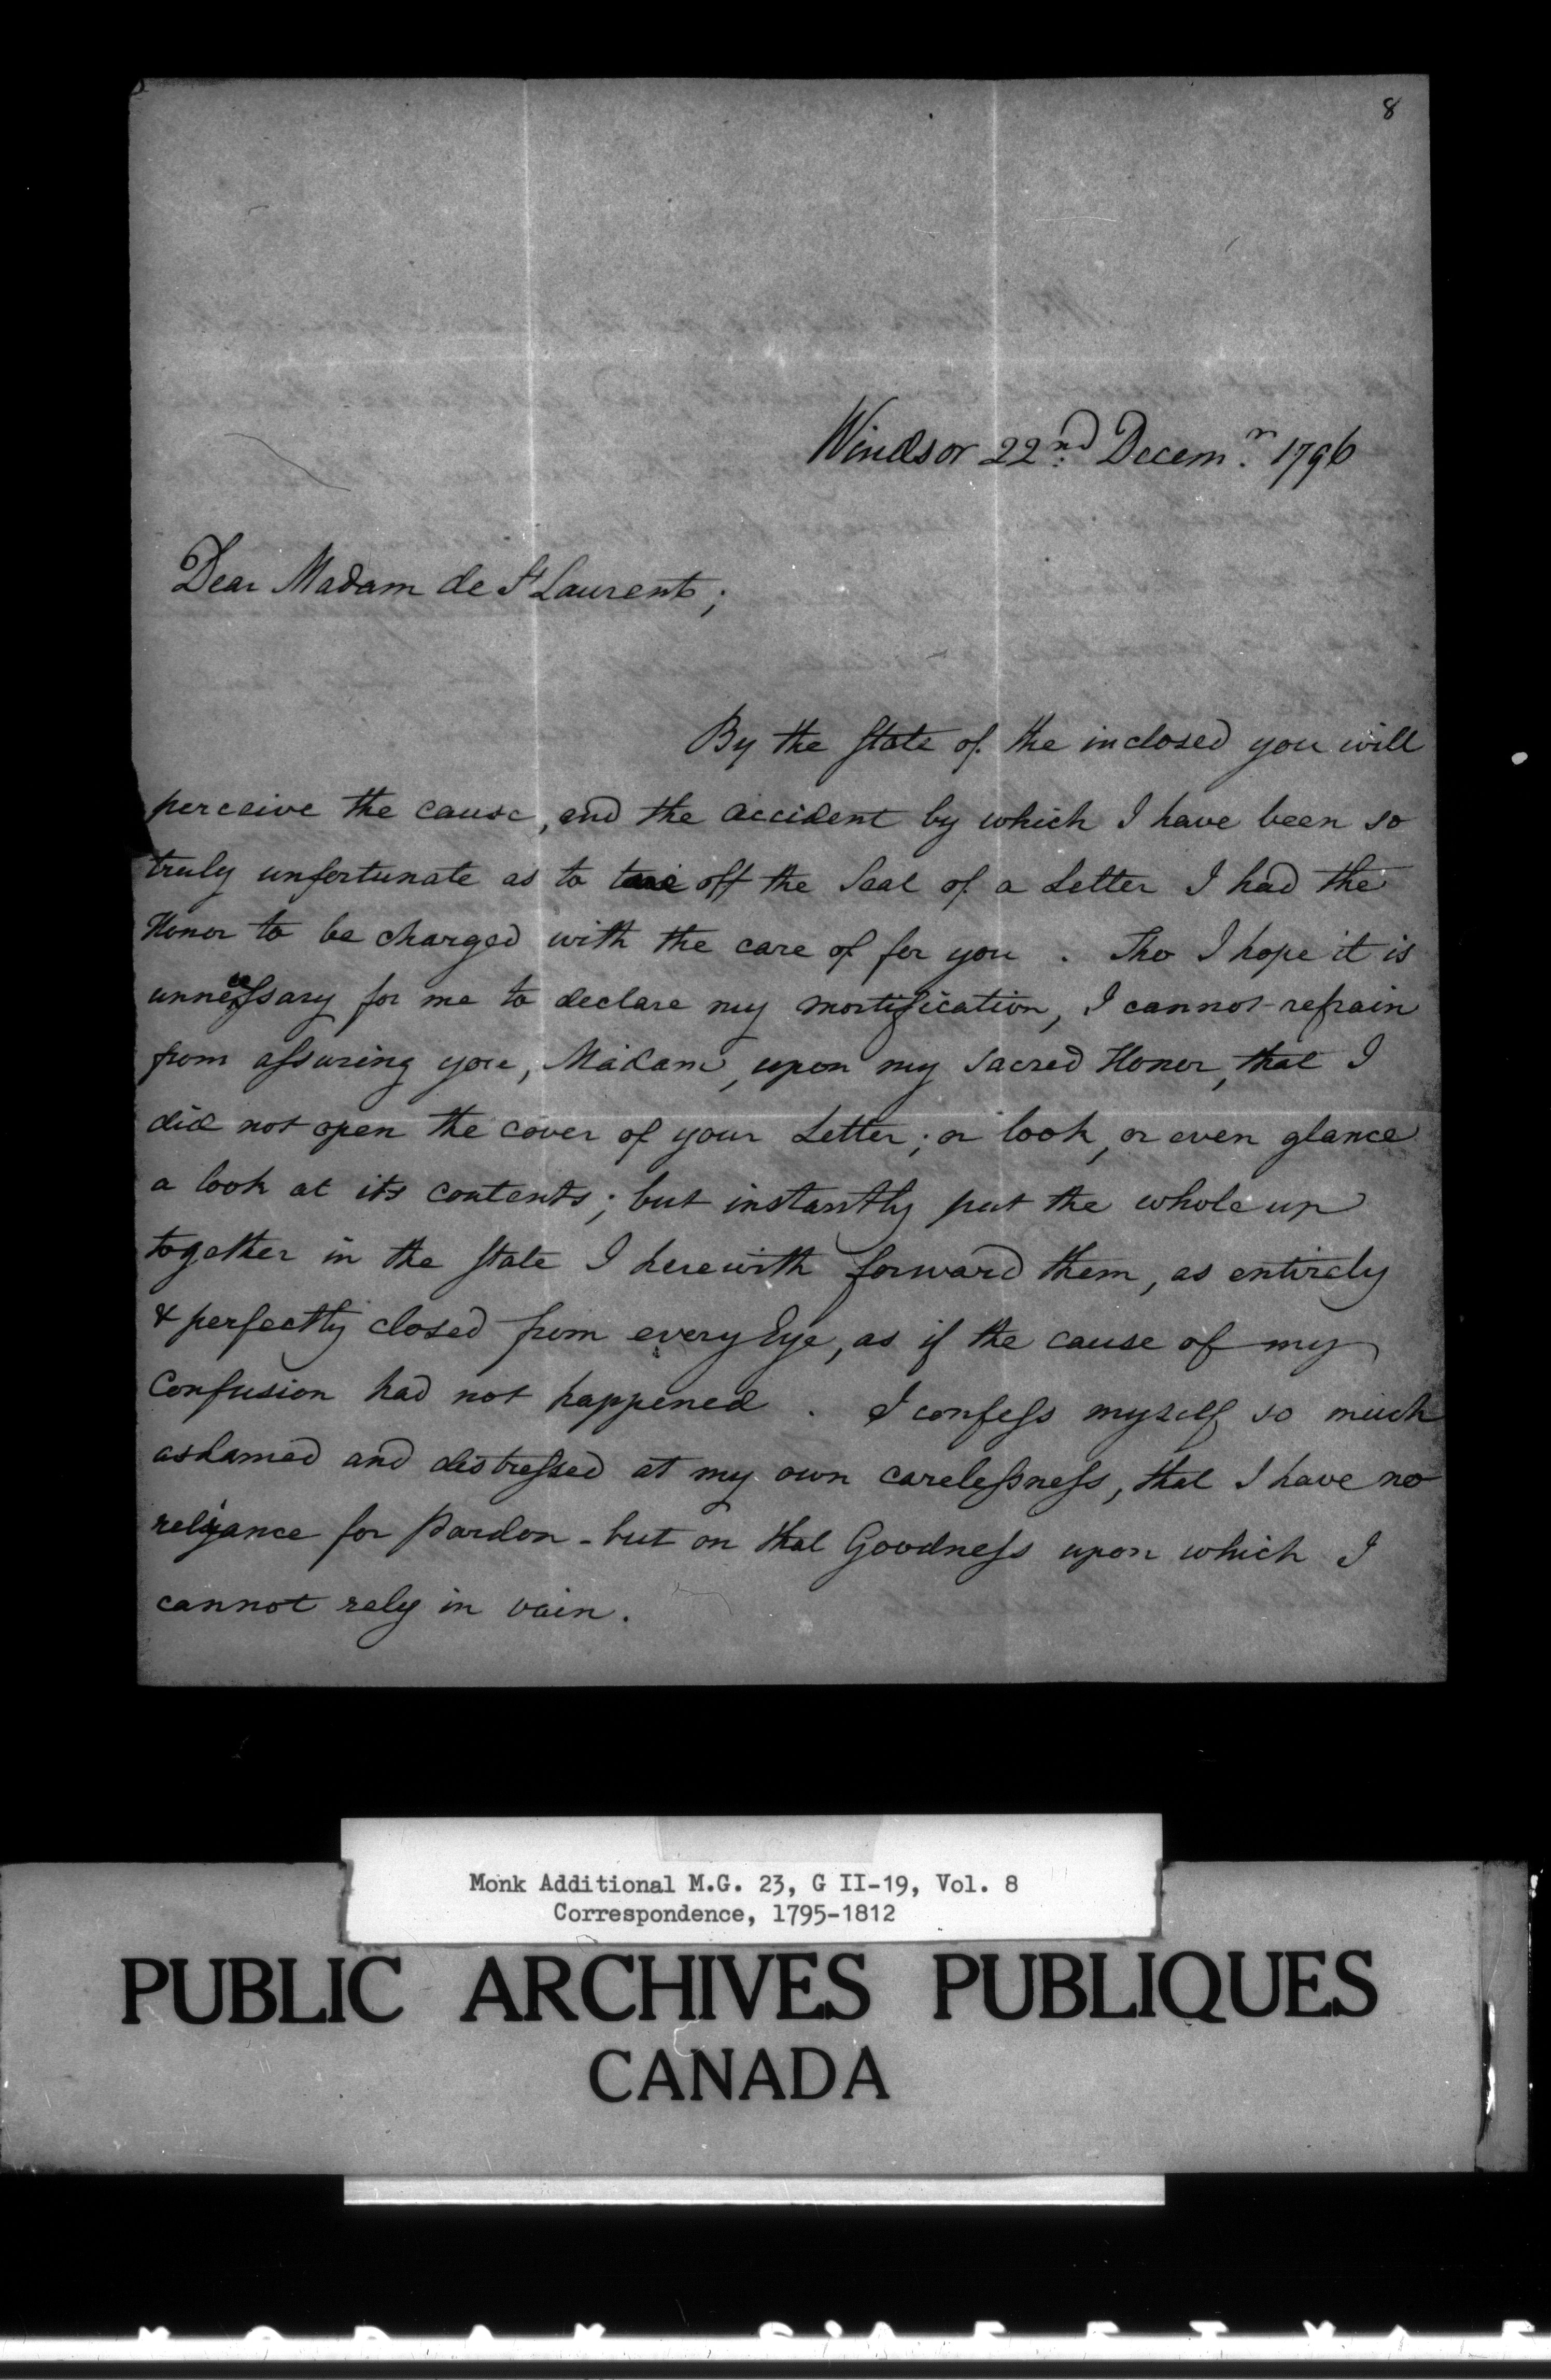 8
Windsor 22nd Decemr. 1796
Dear Madam de St Laurent;
By the State of the inclosed you will
perceive the cause, and the accident by which I have been so
truly unfortunate as to off the Seal of a Letter I had the
Honor to be charged with the care of for you. Tho I hope it is
unnecessary for me to declare my mortification, I cannot refrain
from assuring you, Madam, upon my Sacred Honor, that I
did not open the cover of your Letter; or look, or even glance
a look at its contents; but instantly put the whole up
together in the State I herewith forward them, as entirely
& perfectly closed from every Eye, as if the cause of my
Confusion had not happened. I confess myself so much
ashamed and distressed at my own carelessness, that I have no
reliance for Pardon - but on that Goodness upon which I
cannot rely in vain.
Monk Additional M.G. 23, G II-19, Vol. 8
Correspondence, 1795-1812
PUBLIC ARCHIVES PUBLIQUES
CANADA